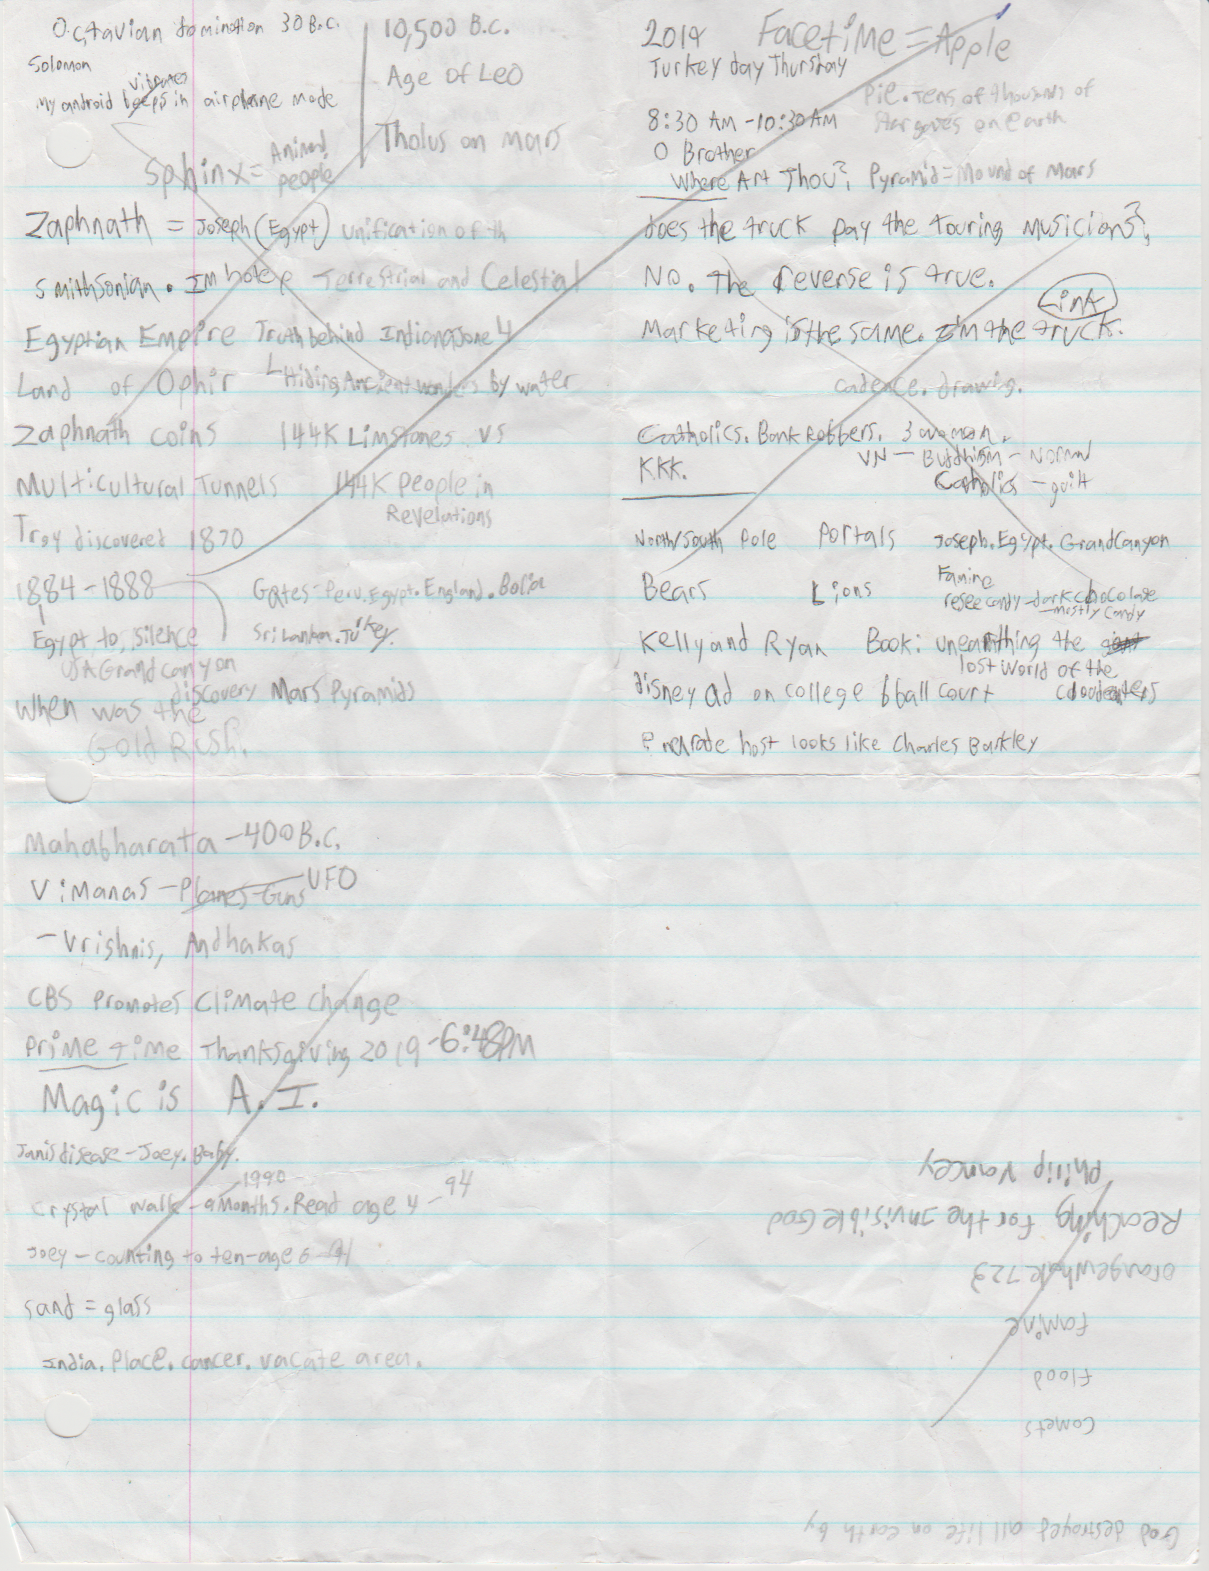 Octavian domination 30 B.C.
Solomon
vibrates
My android beeps in airplane mode
Sphinx = Animal people
10,500 B.C.
Age of Leo
Tholus on Mars
Zaphnath = Joseph (Egypt) unification of th
Smithsonian. Imhotep Terrestrial and Celestial
Egyptian Empire Truth behind Indiana Jone 4
Land of Ophir Hiding Ancient wonders by water
Zaphnath coins 144K Limstones vs
Multicultural Tunnels 144K People in
Revelations
Troy discovered 1870
1884-1888 Gates-Peru. Egypt. England.
Egypt to silence Sri Lanka.
USA Grand canyon
discovery Mars Pyramids
When was the
Gold Rush.
2019 Facetime = Apple
Turkey day Thursday
Pie. Tens of thousands of
Stargates on earth
8:30 AM-10:30 AM
O Brother
Where Art Thou? Pyramid=Mound of Mars
does the truck pay the touring musicians?
No. The reverse is true.
Link
Marketing is the same. I'm the truck.
cadence. drawing.
Catholics. Bank Robbers. 3 woman.
KKK. VN - Buddhism - Normal
Catholics - guilt
North/South Pole Portals Joseph. Egypt. Grand Canyon
Bears Lions Famine
resee candy-dark chocolate
-mostly candy
Kelly and Ryan Book: unearthing the
lost world of the
disney ad on college bball court cloudeaters
host looks like Charles Barkley
Mahabharata - 400 B.C.
Vimanas - Planes-Guns UFO
- Vrishnis, Andhakas
CBS Promotes Climate change
Prime time Thanksgiving 2019 - 6:48PM
Magic is A.I.
Janis disease - Joey. Baby.
1990
Crystal walk - 9 months. Read age 4 - 94
Joey - counting to ten-age 6 - 91
sand = glass
India. Place. cancer. vacate area.
God destroyed all life on earth by
Comets
flood
famine
orangewhale723
Reaching for the Invisible God
Philip Yancey